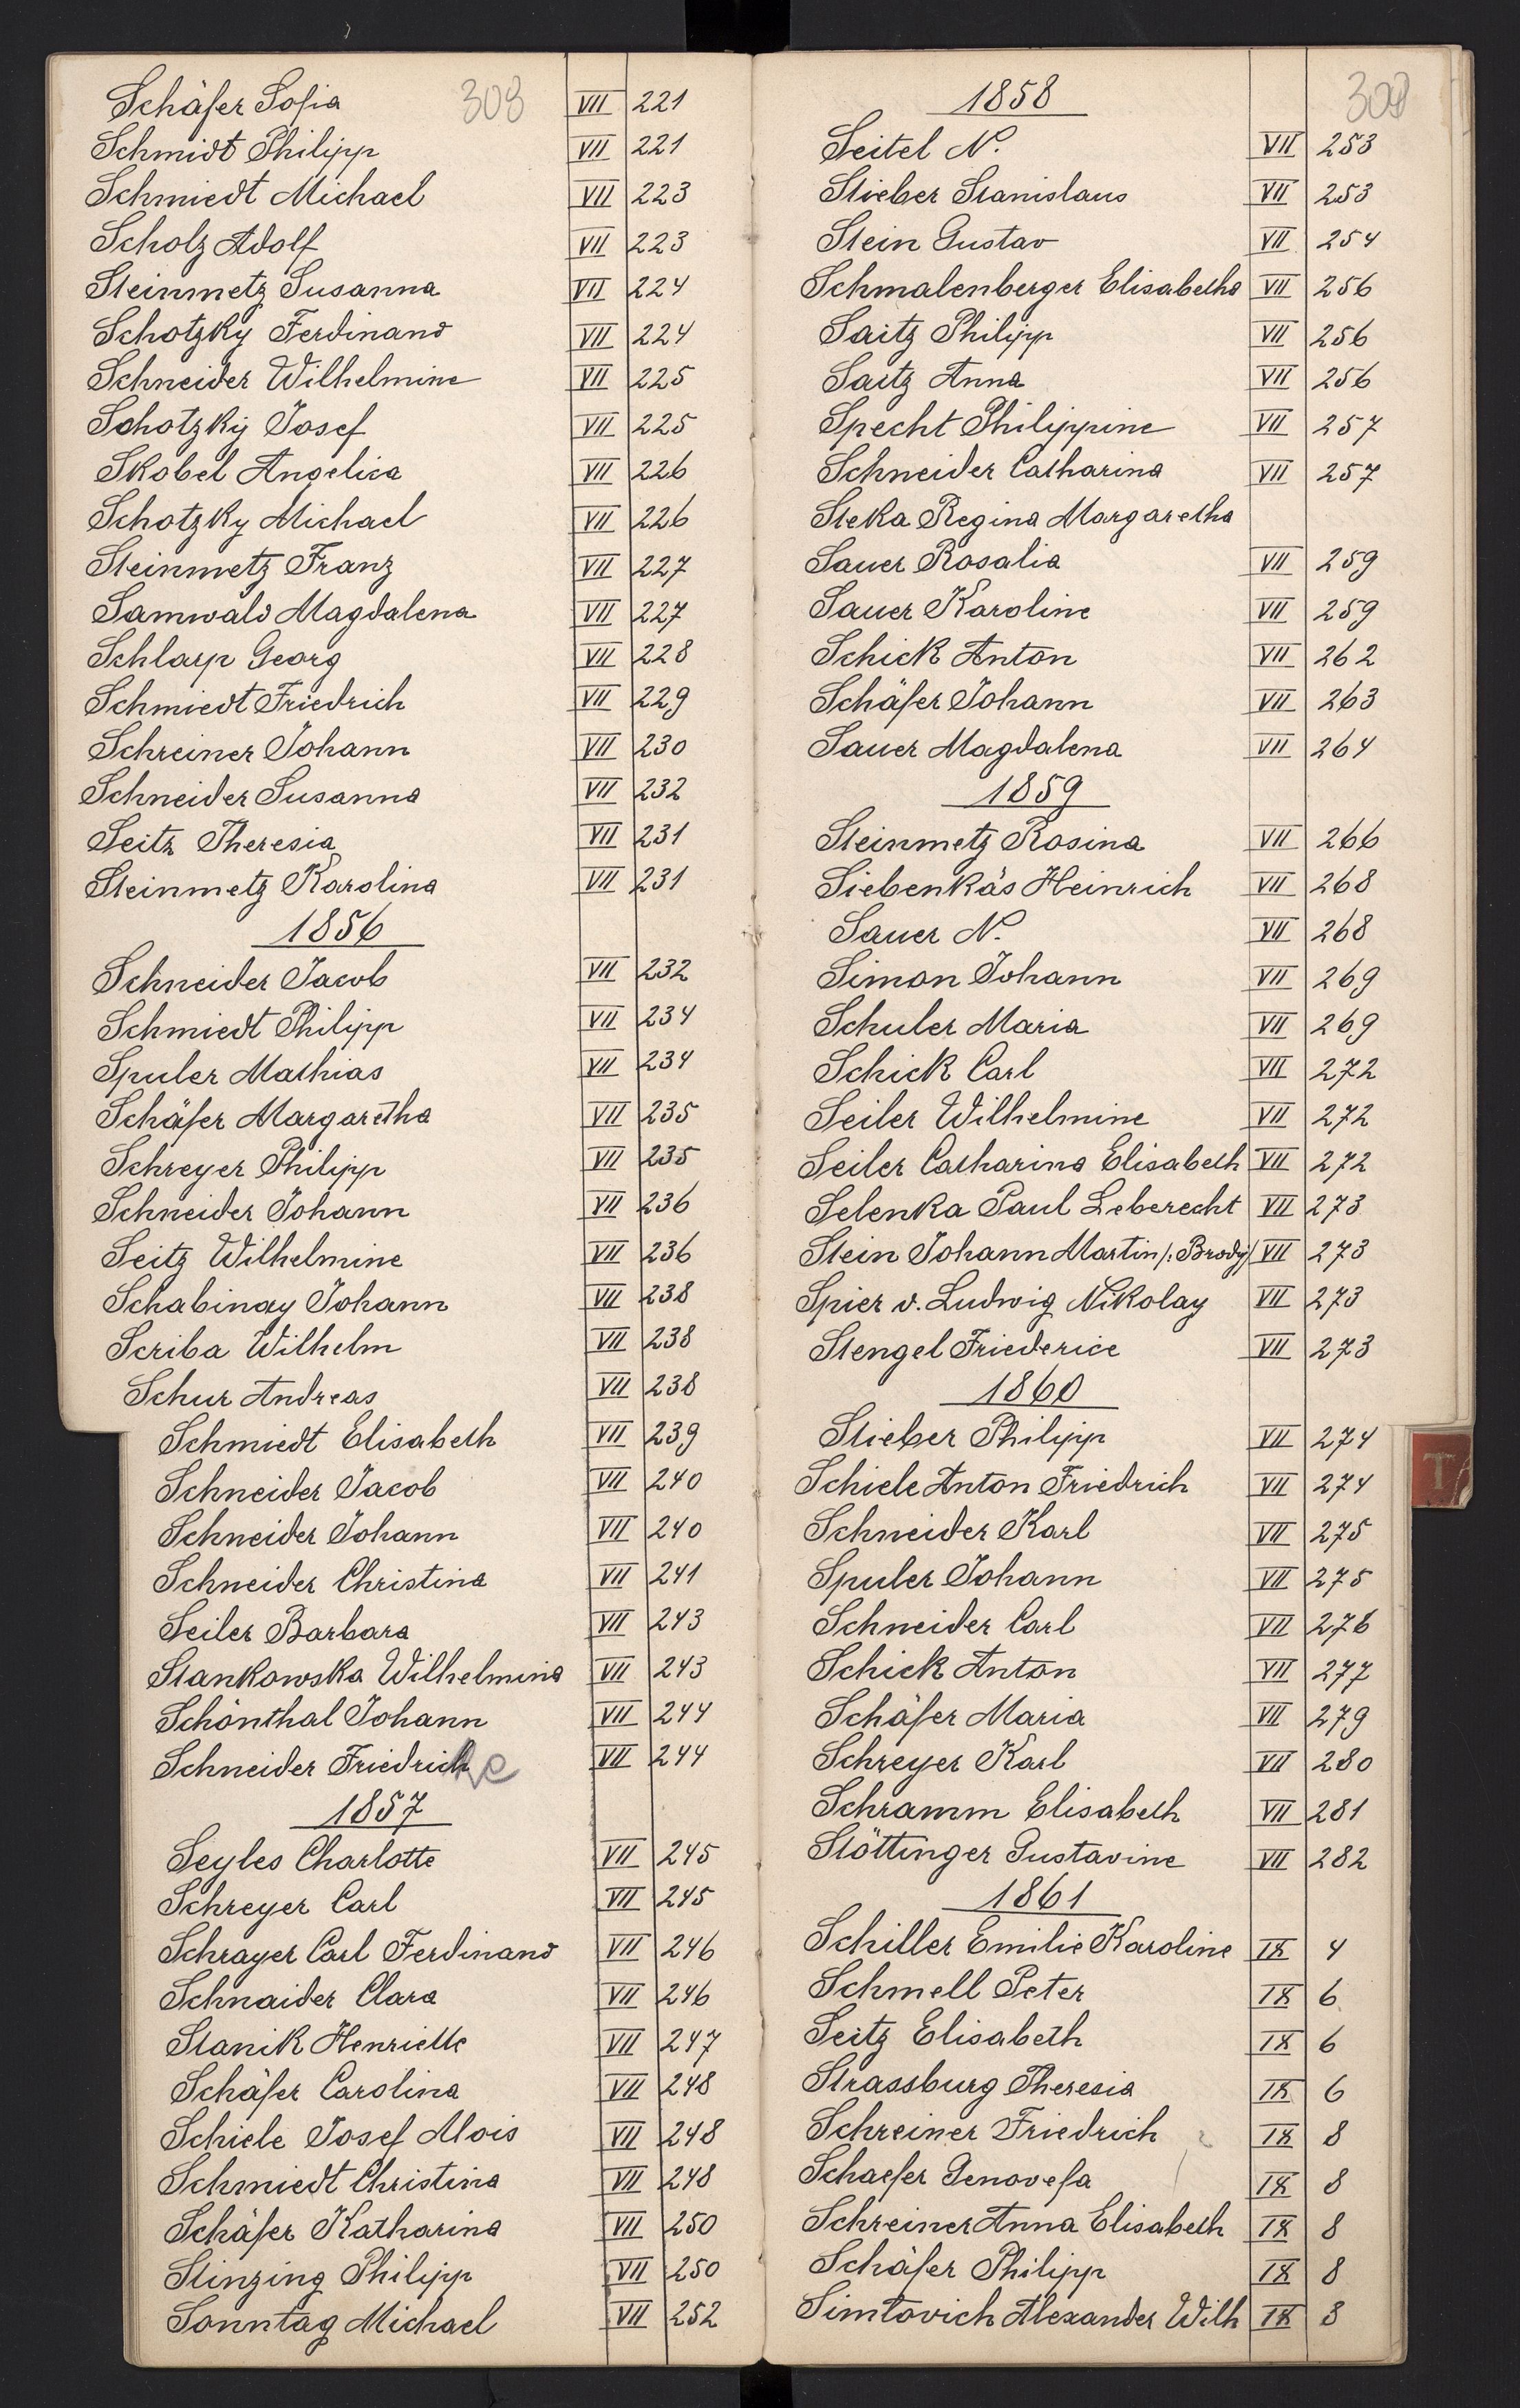 308
Schäfer Sofia VII 221
Schmidt Philipp VII 221
Schmiedt Michael VII 223
Scholz Adolf VII 223
Steinmetz Susanna VII 224
Schotzky Ferdinand VII 224
Schneider Wilhelmine VII 225
Schotzky Josef VII 225
Skobel Angelica VII 226
Schotzky Michael VII 226
Steinmetz Franz VII 227
Samwald Magdalena VII 227
Schlarp Georg VII 228
Schmiedt Friedrich VII 229
Schreiner Johann VII 230
Schneider Susanna VII 232
Seitz Theresia VII 231
Steinmetz Karolina VII 231
1856
Schneider Jacob VII 232
Schmiedt Philipp VII 234
Spuler Mathias VII 234
Schäfer Margaretha VII 235
Schreyer Philipp VII 235
Schneider Johann VII 236
Seitz Wilhelmine VII 236
Schabinay Johann VII 238
Scriba Wilhelm VII 238
Schur Andreas VII 238
Schmiedt Elisabeth VII 239
Schneider Jacob VII 240
Schneider Johann VII 240
Schneider Christina VII 241
Seiler Barbara VII 243
Stankowska Wilhelmina VII 243
Schönthal Johann VII 244
Schneider Friedrich VII 244
1857
Seyles Charlotte VII 245
Schreyer Carl VII 245
Schrayer Carl Ferdinand VII 246
Schnaider Clara VII 246
Stanik Henriette VII 247
Schäfer Carolina VII 248
Schiele Josef Alois VII 248
Schmiedt Christina VII 248
Schäfer Katharina VII 250
Stinzing Philipp VII 250
Sonntag Michael VII 252
309
1858
Seitel N. VII 253
Stieber Stanislaus VII 253
Stein Gustav VII 254
Schmalenberger Elisabetha VII 256
Saitz Philipp VII 256
Saitz Anna VII 256
Specht Philippine VII 257
Schneider Catharina VII 257
Steka Regina Margaretha
Sauer Rosalia VII 259
Sauer Karoline VII 259
Schick Anton VII 262
Schäfer Johann VII 263
Sauer Magdalena VII 264
1859
Steinmetz Rosina VII 266
Siebenkäs Heinrich VII 268
Sauer N. VII 268
Simon Johann VII 269
Schuler Maria VII 269
Schick Carl VII 272
Seiler Wilhelmine VII 272
Seiler Catharina Elisabeth VII 272
Selenka Paul Leberecht VII 273
Stein Johann Martin /: Brody/ VII 273
Spier v. Ludwig Nikolay VII 273
Stengel Friederice VII 273
1860
Stieber Philipp VII 274
Schiele Anton Friedrich VII 274
Schneider Karl VII 275
Spuler Johann VII 275
Schneider Carl VII 276
Schick Anton VII 277
Schäfer Maria VII 279
Schreyer Karl VII 280
Schramm Elisabeth VII 281
Stöttinger Gustavine VII 282
1861
Schiller Emilie Karoline IX 4
Schmell Peter IX 6
Seitz Elisabeth IX 6
Strassburg Theresia IX 6
Schreiner Friedrich IX 8
Schaefer Genovefa IX 8
Schreiner Anna Elisabeth IX 8
Schäfer Philipp IX 8
Simtovich Alexander Wilh IX 8
T